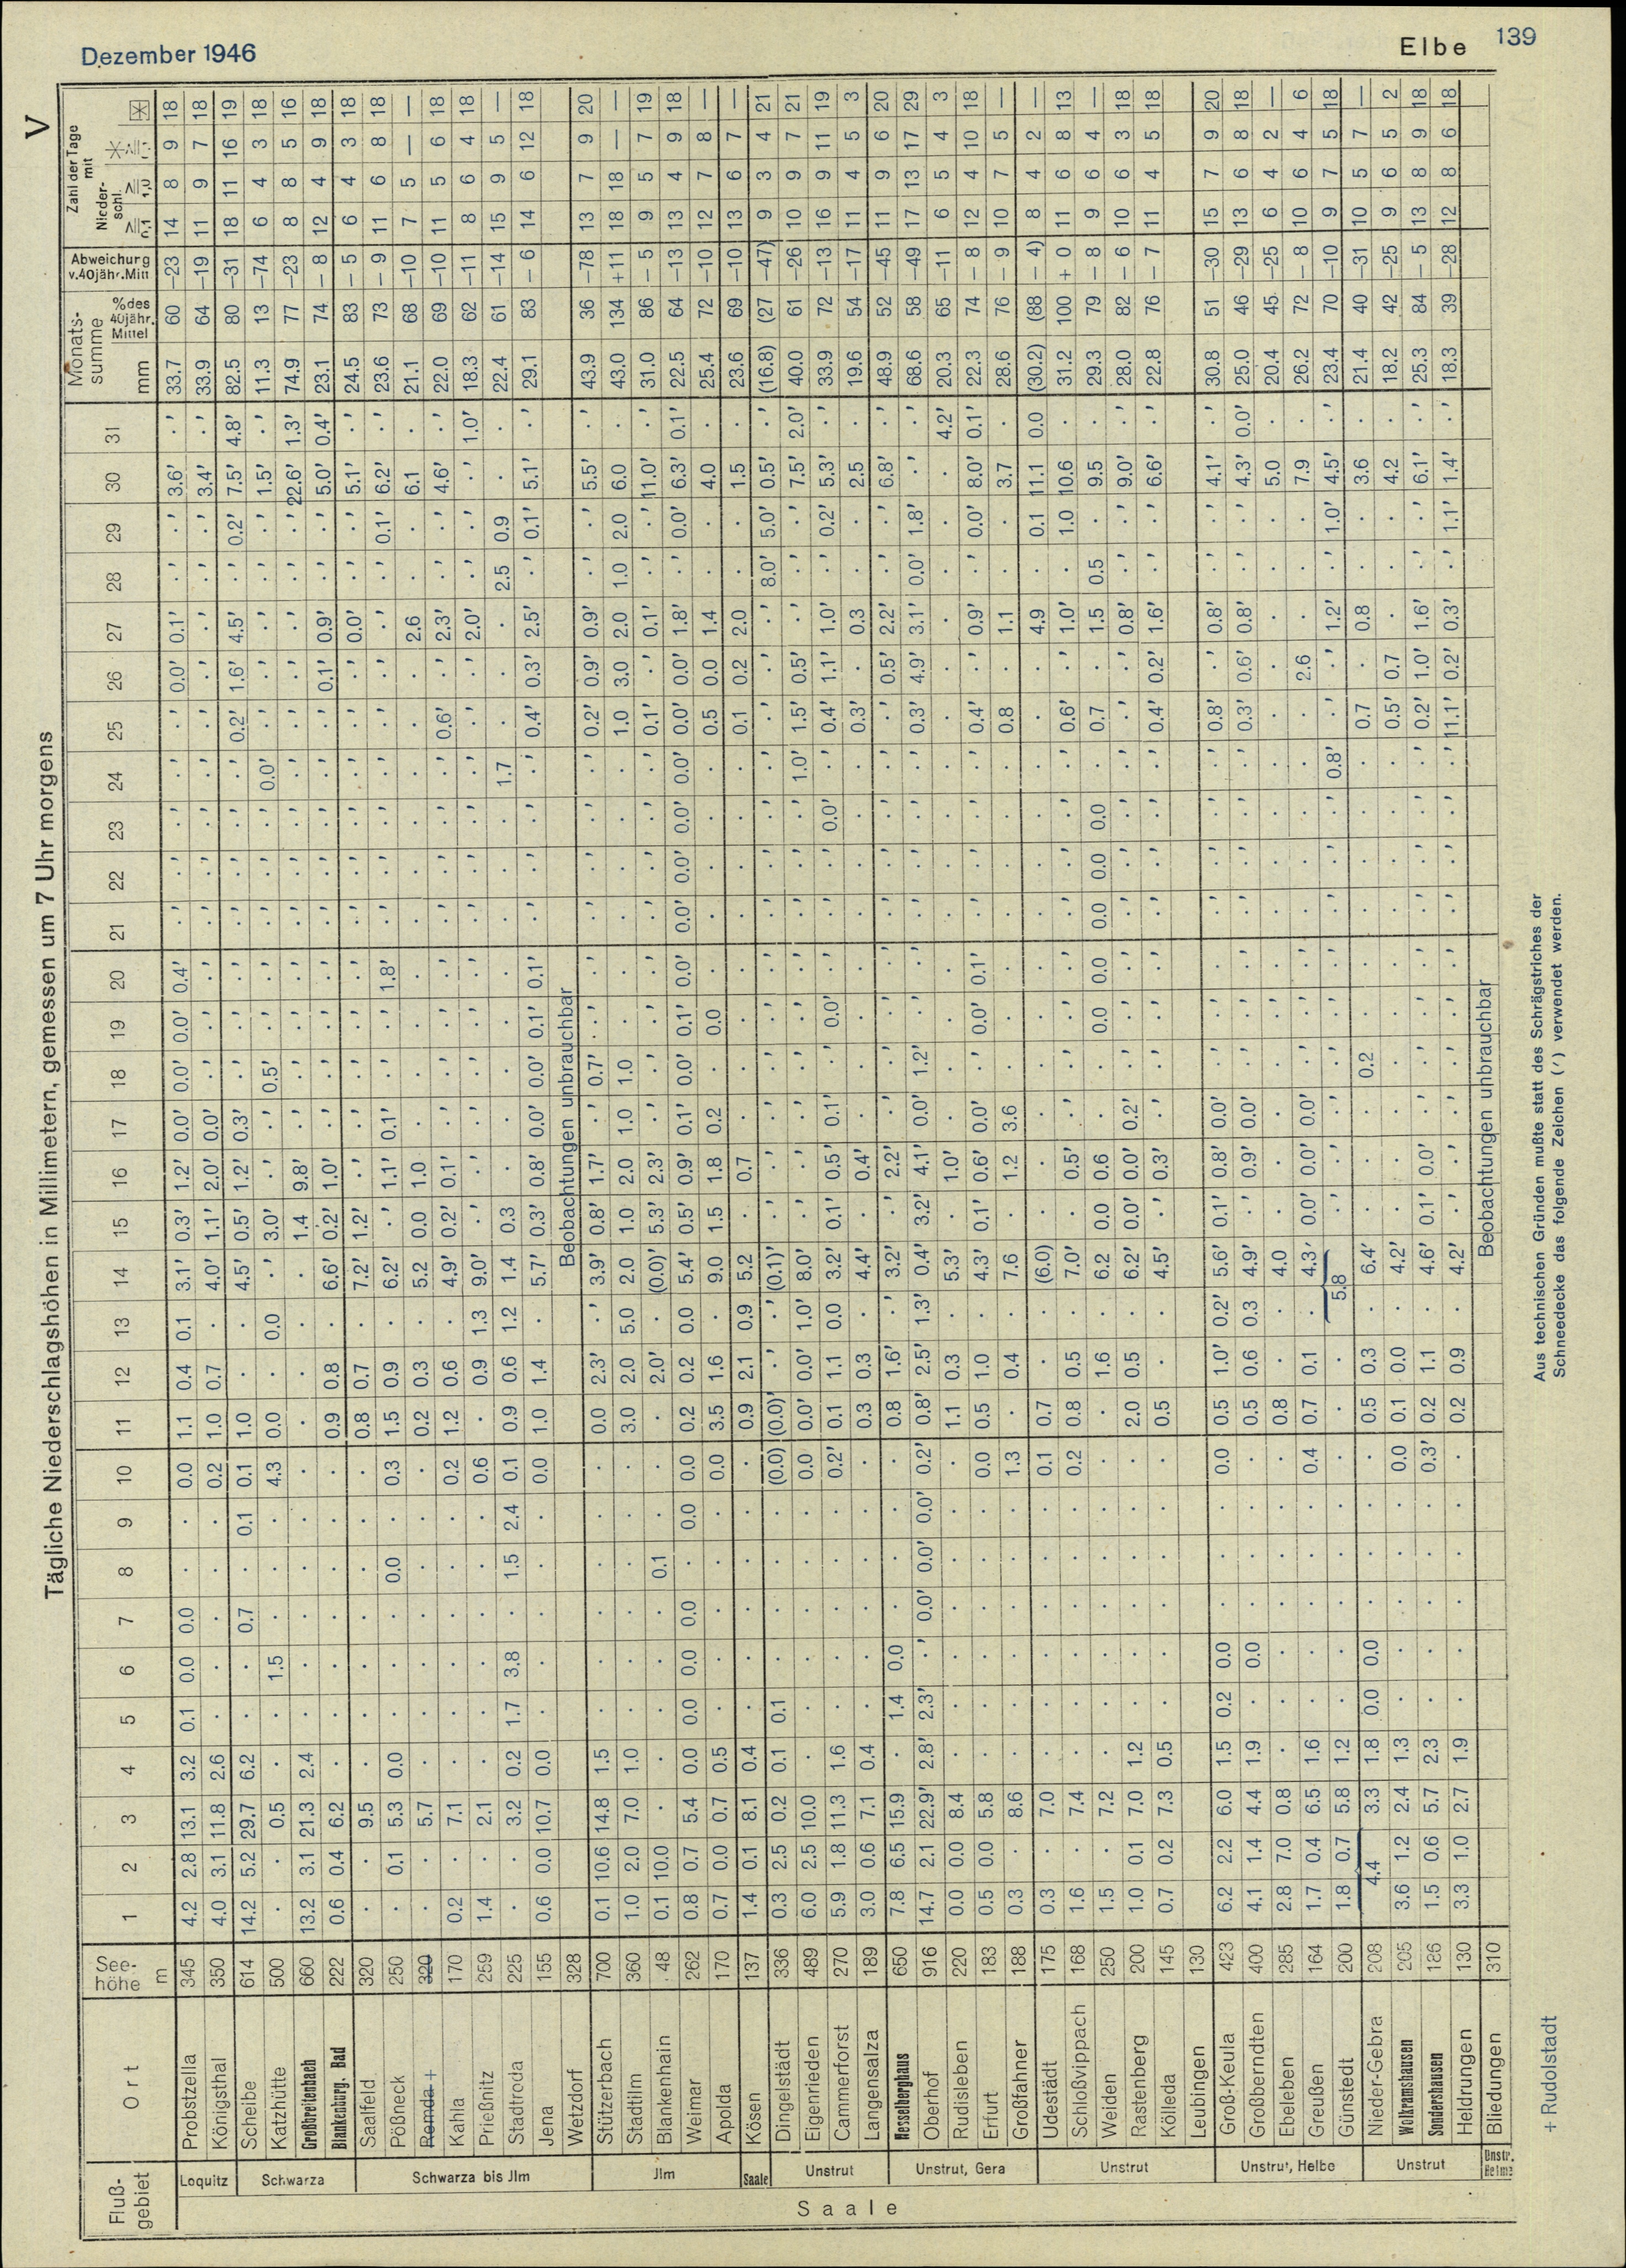 Dezember 1946
Elbe 139
V
Tägliche Niederschlagshöhen in Millimetern, gemessen um 7 Uhr morgens
Fluß-gebiet | Ort | See-höhe m | 1 | 2 | 3 | 4 | 5 | 6 | 7 | 8 | 9 | 10 | 11 | 12 | 13 | 14 | 15 | 16 | 17 | 18 | 19 | 20 | 21 | 22 | 23 | 24 | 25 | 26 | 27 | 28 | 29 | 30 | 31 | Monats-summe mm | %des 40jähr. Mittel | Abweichung v.40jähr.Mittl | Zahl der Tage mit Nieder-schl. ≥0,1 | ≥1,0
Saale
Loquitz
Probstzella 345 4.2 2.8 13.1 3.2 0.1 0.0 0.0 . . 0.0 1.1 0.4 0.1 3.1' 0.3' 1.2' 0.0' 0.0' 0.0' 0.4' .' .' .' .' .' 0.0' 0.1' .' .' 3.6' .' 33.7 60 —23 14 8 9 18
Königsthal 350 4.0 3.1 11.8 2.6 . . . . . 0.2 1.0 0.7 . 4.0' 1.1' 2.0' 0.0' .' .' .' .' .' .' .' .' .' .' .' .' 3.4' .' 33.9 64 —19 11 9 7 18
Schwarza
Scheibe 614 14.2 5.2 29.7 6.2 . . 0.7 . 0.1 0.1 1.0 . . 4.5' 0.5' 1.2' 0.3' .' .' .' .' .' .' .' 0.2' 1.6' 4.5' .' 0.2' 7.5' 4.8' 82.5 80 —31 18 11 16 19
Katzhütte 500 . . 0.5 . . 1.5 . . . 4.3 0.0 . 0.0 .' 3.0' .' .' 0.5' .' .' .' .' .' 0.0' .' .' .' .' .' 1.5' .' 11.3 13 —74 6 4 3 18
Großbreitenbach 660 13.2 3.1 21.3 2.4 . . . . . . . . . . 1.4 9.8' .' .' .' .' .' .' .' .' .' .' .' .' .' 22.6' 1.3' 74.9 77 —23 8 8 5 16
Blankenburg. Bad 222 0.6 0.4 6.2 . . . . . . . 0.9 0.8 . 6.6' 0.2' 1.0' .' .' .' .' .' .' .' .' .' 0.1' 0.9' .' .' 5.0' 0.4' 23.1 74 — 8 12 4 9 18
Schwarza bis Jlm
Saalfeld 320 . . 9.5 . . . . . . . 0.8 0.7 . 7.2' 1.2' .' .' .' .' .' .' .' .' .' .' .' 0.0' .' .' 5.1' .' 24.5 83 — 5 6 4 3 18
Pößneck 250 . 0.1 5.3 0.0 . . . 0.0 . 0.3 1.5 0.9 . 6.2' .' 1.1' 0.1' .' .' 1.8' .' .' .' .' .' .' .' .' 0.1' 6.2' .' 23.6 73 — 9 11 6 8 18
Remda + 320 . . 5.7 . . . . . . . 0.2 0.3 . 5.2 0.0 1.0 . . . . . . . . . . 2.6 . . 6.1 . 21.1 68 —10 7 5 — —
Kahla 170 0.2 . 7.1 . . . . . . 0.2 1.2 0.6 . 4.9' 0.2' 0.1' .' .' .' .' .' .' .' .' 0.6' .' 2.3' .' .' 4.6' .' 22.0 69 —10 11 5 6 18
Prießnitz 259 1.4 . 2.1 . . . . . . 0.6 . 0.9 1.3 9.0' .' .' .' .' .' .' .' .' .' .' .' .' 2.0' .' .' .' 1.0' 18.3 62 —11 8 6 4 18
Stadtroda 225 . . 3.2 0.2 1.7 3.8 . 1.5 2.4 0.1 0.9 0.6 1.2 1.4 0.3 . . . . . . . . 1.7 . . . 2.5 0.9 . . 22.4 61 —14 15 9 5 —
Jena 155 0.6 0.0 10.7 0.0 . . . . . 0.0 1.0 1.4 . 5.7' 0.3' 0.8' 0.0' 0.0' 0.1' 0.1' .' .' .' .' 0.4' 0.3' 2.5' .' 0.1' 5.1' .' 29.1 83 — 6 14 6 12 18
Wetzdorf 328 Beobachtungen unbrauchbar
Jlm
Stützerbach 700 0.1 10.6 14.8 1.5 . . . . . . 0.0 2.3' .' 3.9' 0.8' 1.7' .' 0.7' .' .' .' .' .' .' 0.2' 0.9' 0.9' .' .' 5.5' .' 43.9 36 —78 13 7 9 20
Stadtilm 360 1.0 2.0 7.0 1.0 . . . . . . 3.0 2.0 5.0 2.0 1.0 2.0 1.0 1.0 . . . . . . 1.0 3.0 2.0 1.0 2.0 6.0 . 43.0 134 +11 18 18 — —
Blankenhain 48 0.1 10.0 . . . . . 0.1 . . . 2.0' . (0.0)' 5.3' 2.3' .' .' .' .' .' .' .' .' 0.1' .' 0.1' .' .' 11.0' .' 31.0 86 — 5 9 5 7 19
Weimar 262 0.8 0.7 5.4 0.0 0.0 0.0 0.0 . 0.0 0.0 0.2 0.2 0.0 5.4' 0.5' 0.9' 0.1' 0.0' 0.1' 0.0' 0.0' 0.0' 0.0' 0.0' 0.0' 0.0' 1.8' .' 0.0' 6.3' 0.1' 22.5 64 —13 13 4 9 18
Apolda 170 0.7 0.0 0.7 0.5 . . . . . 0.0 3.5 1.6 . 9.0 1.5 1.8 0.2 . 0.0 . . . . . 0.5 0.0 1.4 . . 4.0 . 25.4 72 —10 12 7 8 —
Saale
Kösen 137 1.4 0.1 8.1 0.4 . . . . . . 0.9 2.1 0.9 5.2 . 0.7 . . . . . . . . 0.1 0.2 2.0 . . 1.5 . 23.6 69 —10 13 6 7 —
Unstrut
Dingelstädt 336 0.3 2.5 0.2 0.1 0.1 . . . . (0.0) (0.0)' .' .' (0.1)' .' .' .' .' .' .' .' .' .' .' .' .' .' 8.0' 5.0' 0.5' .' (16.8) (27 —47) 9 3 4 21
Eigenrieden 489 6.0 2.5 10.0 . . . . . . 0.0 0.0' 0.0' 1.0' 8.0' .' .' .' .' .' .' .' .' .' 1.0' 1.5' 0.5' .' .' .' 7.5' 2.0' 40.0 61 —26 10 9 7 21
Cammerforst 270 5.9 1.8 11.3 1.6 . . . . . 0.2' 0.1 1.1 0.0 3.2' 0.1' 0.5' 0.1' .' 0.0' .' .' .' 0.0' .' 0.4' 1.1' 1.0' .' 0.2' 5.3' .' 33.9 72 —13 16 9 11 19
Langensalza 189 3.0 0.6 7.1 0.4 . . . . . . 0.3 0.3 . 4.4' . 0.4' . . . . . . . . 0.3' . 0.3 . . 2.5 . 19.6 54 —17 11 4 5 3
Unstrut, Gera
Hesselberghaus 650 7.8 6.5 15.9 . 1.4 0.0 . . . . 0.8 1.6' .' 3.2' .' 2.2' .' .' .' .' .' .' .' .' .' 0.5' 2.2' .' .' 6.8' .' 48.9 52 —45 11 9 6 20
Oberhof 916 14.7 2.1 22.9' 2.8' 2.3' .' 0.0' 0.0' 0.0' 0.2' 0.8' 2.5' 1.3' 0.4' 3.2' 4.1' 0.0' 1.2' .' .' .' .' .' .' 0.3' 4.9' 3.1' 0.0' 1.8' .' .' 68.6 58 —49 17 13 17 29
Rudisleben 220 0.0 0.0 8.4 . . . . . . . 1.1 0.3 . 5.3' . 1.0' . . . . . . . . . . . . . . 4.2' 20.3 65 —11 6 5 4 3
Erfurt 183 0.5 0.0 5.8 . . . . . . 0.0 0.5 1.0 . 4.3' 0.1' 0.6' 0.0' .' 0.0' 0.1' .' .' .' .' 0.4' .' 0.9' .' 0.0' 8.0' 0.1' 22.3 74 — 8 12 4 10 18
Großfahner 188 0.3 . 8.6 . . . . . . 1.3 . 0.4 . 7.6 . 1.2 3.6 . . . . . . . 0.8 . 1.1 . . 3.7 . 28.6 76 — 9 10 7 5 —
Unstrut
Udestädt 175 0.3 . 7.0 . . . . . . 0.1 0.7 . . (6.0) . . . . . . . . . . . . 4.9 . 0.1 11.1 0.0 (30.2) (88 — 4) 8 4 2 —
Schloßvippach 168 1.6 . 7.4 . . . . . . 0.2 0.8 0.5 . 7.0' .' 0.5' .' .' .' .' .' .' .' .' 0.6' .' 1.0' . 1.0 10.6 . 31.2 100 + 0 11 6 8 13
Weiden 250 1.5 . 7.2 . . . . . . . . 1.6 . 6.2 0.0 0.6 . . 0.0 0.0 0.0 0.0 0.0 . 0.7 . 1.5 0.5 . 9.5 . 29.3 79 — 8 9 6 4 —
Rastenberg 200 1.0 0.1 7.0 1.2 . . . . . . 2.0 0.5 . 6.2' 0.0' 0.0' 0.2' .' .' .' .' .' .' .' .' .' 0.8' .' .' 9.0' .' 28.0 82 — 6 10 6 3 18
Kölleda 145 0.7 0.2 7.3 0.5 . . . . . . 0.5 . . 4.5' .' 0.3' .' .' .' .' .' .' .' .' 0.4' 0.2' 1.6' .' .' 6.6' .' 22.8 76 — 7 11 4 5 18
Leubingen 130
Unstrut, Helbe
Groß-Keula 423 6.2 2.2 6.0 1.5 0.2 0.0 . . . 0.0 0.5 1.0' 0.2' 5.6' 0.1' 0.8' 0.0' .' .' .' .' .' .' .' 0.8' .' 0.8' .' .' 4.1' .' 30.8 51 —30 15 7 9 20
Großberndten 400 4.1 1.4 4.4 1.9 . 0.0 . . . . 0.5 0.6 0.3 4.9' .' 0.9' 0.0' .' .' .' .' .' .' .' 0.3' 0.6' 0.8' .' .' 4.3' 0.0' 25.0 46 —29 13 6 8 18
Ebeleben 285 2.8 7.0 0.8 . . . . . . . 0.8 . . 4.0 . . . . .' . . . . . . . . . . 5.0 . 20.4 45 —25 6 4 2 —
Greußen 164 1.7 0.4 6.5 1.6 . . . . . 0.4 0.7 0.1 . 4.3' 0.0' 0.0' 0.0' .' .' .' . . . . . 2.6 . . . 7.9 . 26.2 72 — 8 10 6 4 6
Günstedt 200 1.8 0.7 5.8 1.2 . . . . . . . . 5.8 .' .' .' .' .' .' .' .' .' 0.8' .' .' 1.2' .' 1.0' 4.5' .' 23.4 70 —10 9 7 5 18
Unstrut
Nieder-Gebra 208 4.4 3.3 1.8 0.0 0.0 . . . . 0.5 0.3 . 6.4' . . . 0.2 . . . . . . 0.7 . 0.8 . . 3.6 . 21.4 40 —31 10 5 7 —
Wolkramshausen 205 3.6 1.2 2.4 1.3 . . . . . 0.0 0.1 0.0 . 4.2' . . . . . . . . . . 0.5' 0.7 . . . 4.2 . 18.2 42 —25 9 6 5 2
Sondershausen 186 1.5 0.6 5.7 2.3 . . . . . 0.3' 0.2 1.1 . 4.6' 0.1' 0.0' .' .' .' .' .' .' .' .' 0.2' 1.0' 1.6' .' .' 6.1' .' 25.3 84 — 5 13 8 9 18
Heldrungen 130 3.3 1.0 2.7 1.9 . . . . . . 0.2 0.9 . 4.2' .' .' .' .' .' .' .' .' .' .' 11.1' 0.2' 0.3' .' 1.1' 1.4' .' 18.3 39 —28 12 8 6 18
Unstr. Helme
Bliedungen 310 Beobachtungen unbrauchbar
+ Rudolstadt
Aus technischen Gründen mußte statt des Schrägstriches der
Schneedecke das folgende Zeichen (') verwendet werden.